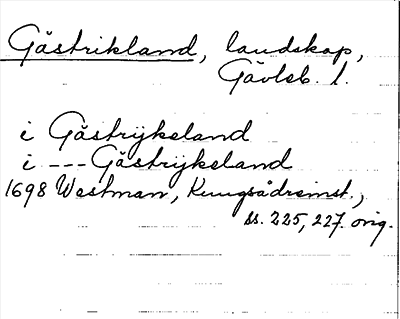 Gästrikland, landskap,
Gävleb. l.
i Gästrijkeland
i --- Gästrijkeland
1698 Westman, Kungsådreinst.,
ss. 225, 227. orig.